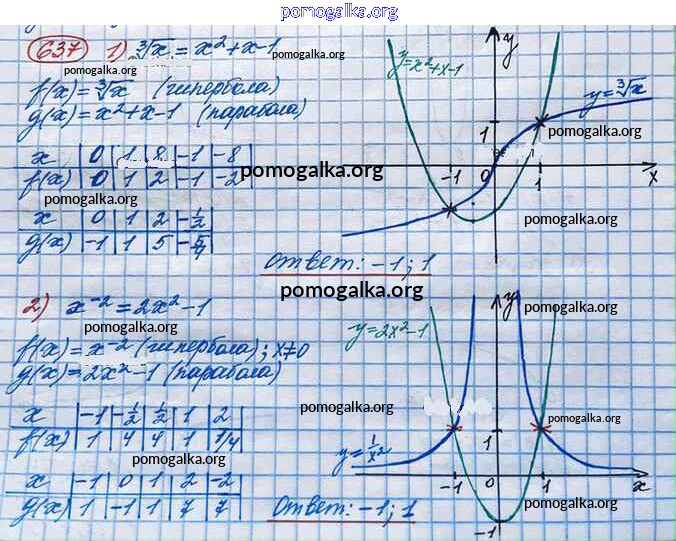 pomogalka.org
637 1) ∛x = x²+x-1
pomogalka.org
pomogalka.org
f(x) = ∛x (гипербола)
g(x) = x²+x-1 (парабола)
pomogalka.org
x | 0 | 1 | 8 | -1 | -8 |
f(x) | 0 | 1 | 2 | -1 | -2 |
pomogalka.org
pomogalka.org
x | 0 | 1 | 2 | -1/2 |
g(x) | -1 | 1 | 5 | -5/4 |
Ответ: -1; 1
y=x²+x-1
y
y=∛x
1
pomogalka.org
-1 0 1 x
pomogalka.org
pomogalka.org
2) x⁻² = 2x²-1
pomogalka.org
f(x) = x⁻² (гипербола); x≠0
g(x) = 2x²-1 (парабола)
x | -1 | -1/2 | 1/2 | 1 | 2 |
f(x) | 1 | 4 | 4 | 1 | 1/4 |
pomogalka.org
x | -1 | 0 | 1 | 2 | -2 |
g(x) | 1 | -1 | 1 | 7 | 7 |
Ответ: -1; 1
y
pomogalka.org
y=2x²-1
pomogalka.org
pomogalka.org
1
y=1/x²
pomogalka.org
-1 0 1 x
pomogalka.org
-1